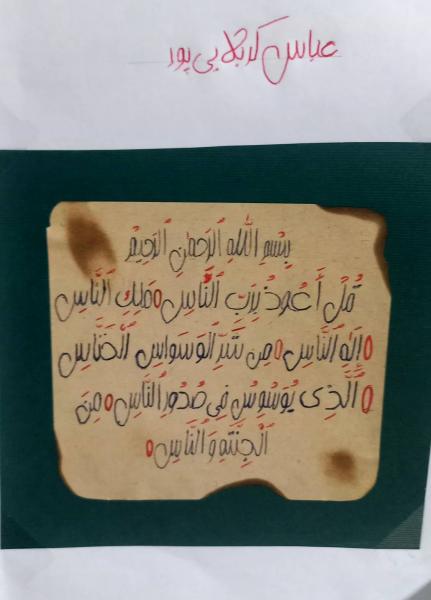 عباس کربلایی پور
بِسْمِ اللهِ الرَّحمنِ الرَّحِیمِ
قُلْ أَعُوذُ بِرَبِّ النَّاسِ ○ مَلِكِ النَّاسِ
○ إِلَهِ النَّاسِ ○ مِن شَرِّ الْوَسْوَاسِ الْخَنَّاسِ
○ الَّذِی یُوَسْوِسُ فِی صُدُورِ النَّاسِ ○ مِنَ
الْجِنَّةِ وَ النَّاسِ ○